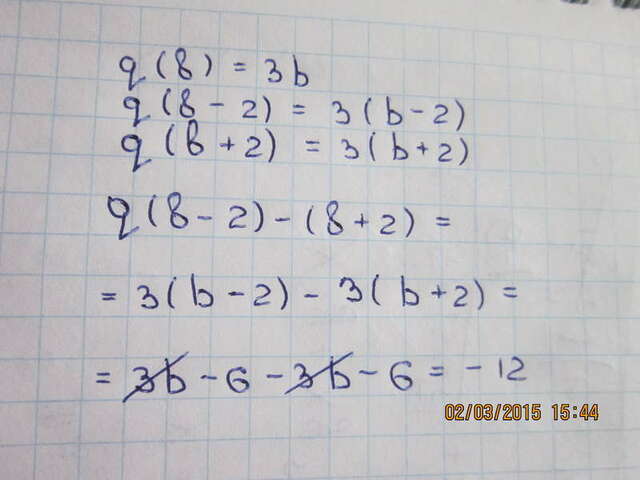 q(b) = 3b
q(b - 2) = 3(b - 2)
q(b + 2) = 3(b + 2)
q(b - 2) - (b + 2) =
= 3(b - 2) - 3(b + 2) =
= 3b - 6 - 3b - 6 = - 12
02/03/2015 15:44